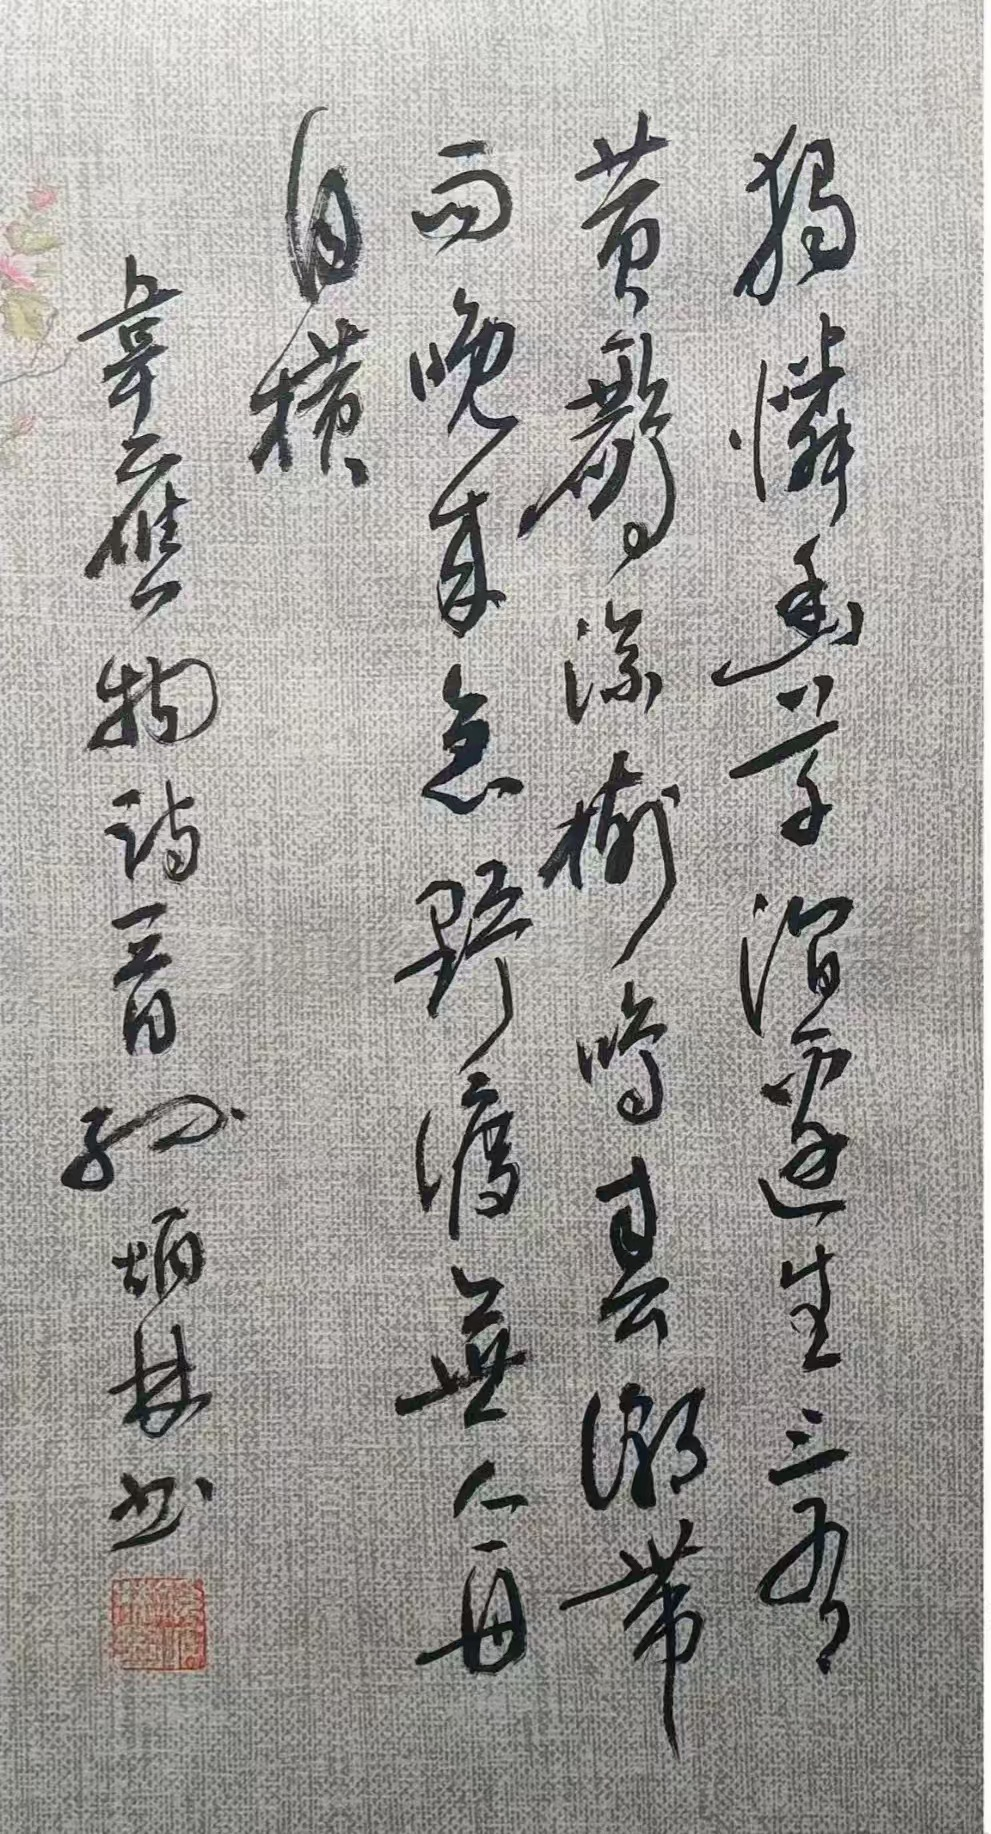 獨憐幽草澗邊生上有
黄鸝深樹鳴春潮帶
雨晚來急野渡無人舟
自横
韋應物詩一首孙炳林书